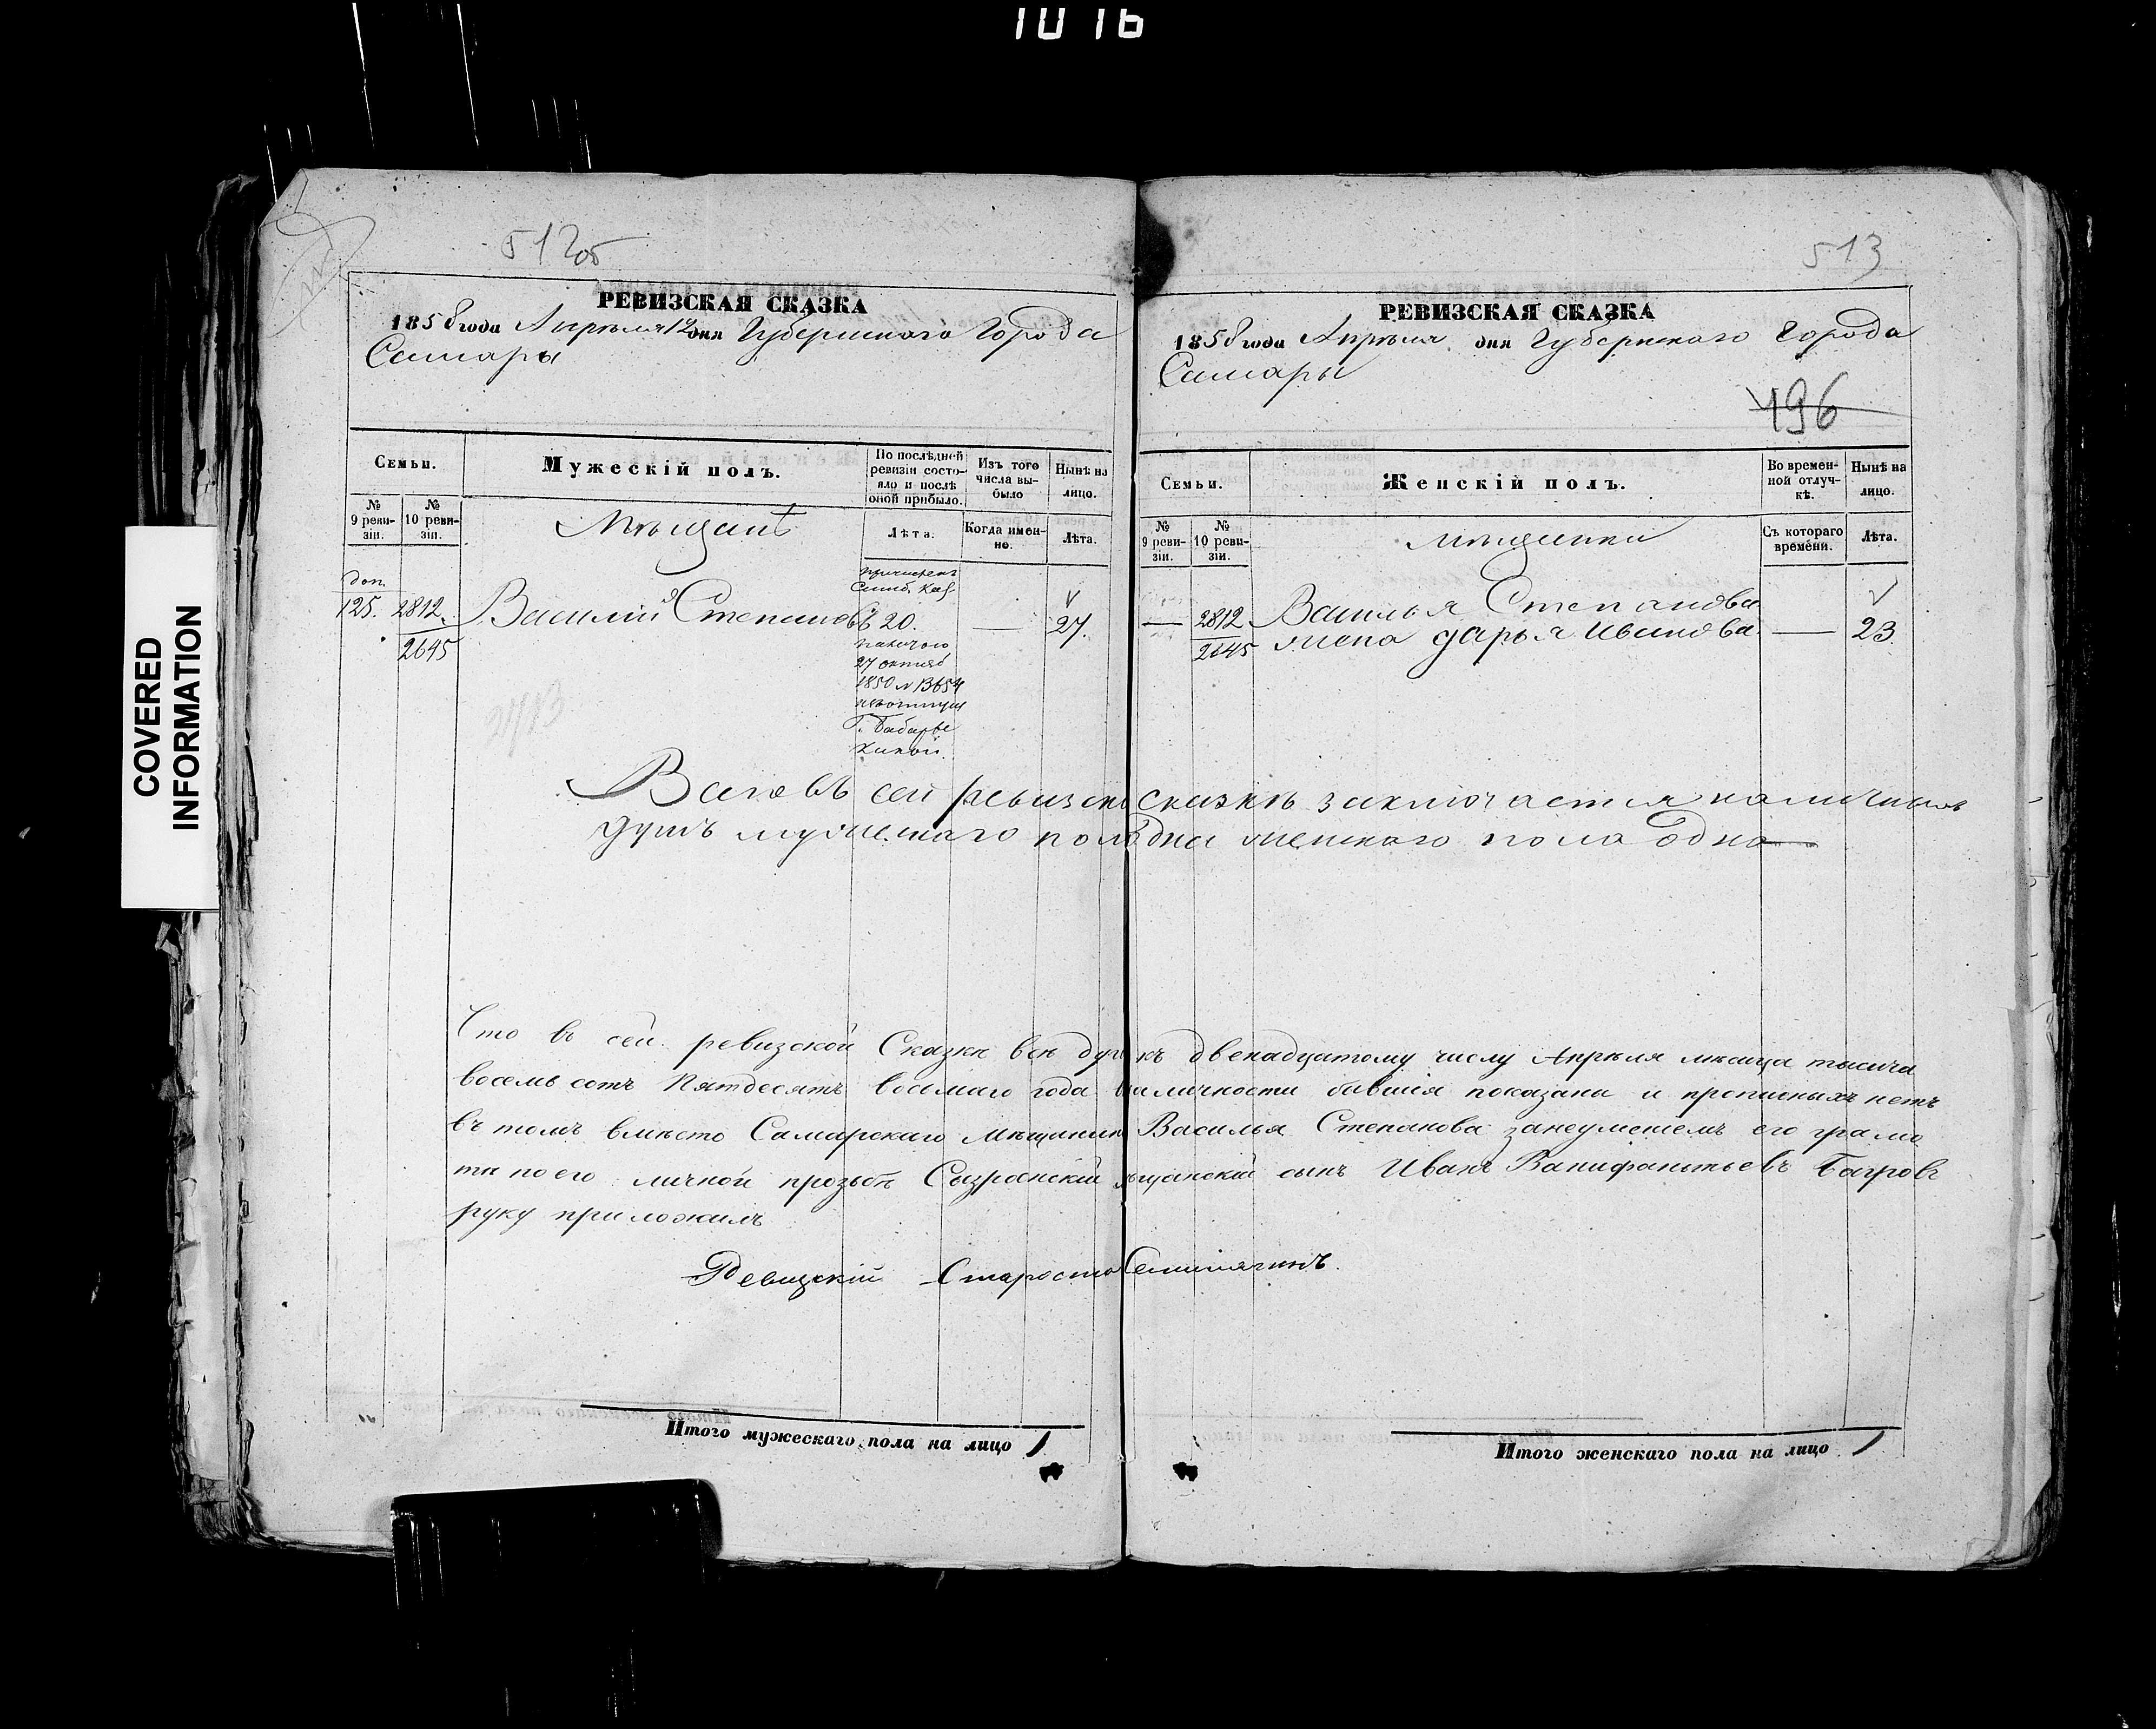 1016
COVERED
INFORMATION
512об
РЕВИЗСКАЯ СКАЗКА
1858 года Апрѣля 12 дня Губернскаго Города
Самары
Семьи.
Мужескій полъ.
По послѣдней ревизіи состояло и послѣ оной прибыло.
Изъ того числа выбыло
Нынѣ на лицо.
№ 9 ревизіи.
№ 10 ревизіи.
Мѣщанѣ
Лѣта.
Когда именно.
Лѣта.
доп.
125. 2812.
2645
Василий Степановъ 20. — 27.
причислен
Симб. Каз
27 октяб
1850 №
513
РЕВИЗСКАЯ СКАЗКА
1858 года Апрѣля дня Губернскаго Города
Самары
496
Семьи.
Женскій полъ.
Во временной отлучкѣ.
Нынѣ на лицо.
№ 9 ревизіи.
№ 10 ревизіи.
мѣщанки
Съ котораго времени.
Лѣта.
— 2812
2645
Василья Степанова
жена дарья Иванова — 23.
Всего въ сей ревизск сказкѣ заключается наличныхъ
душъ мужескаго пола одна женскаго пола одна
Что въ сей ревизской Сказке все душ къ двенадцатому числу Апрѣля мѣсяца тысяча
восемьсотъ Пятдесятъ восьмаго года наличности бывшія показаны и прописныхъ нетъ
въ томъ вмѣсто Самарскаго Мѣщанина Василья Степанова занеумѣніемъ его грамо
тѣ по его личной прозьбѣ Сызранскій мѣщанскій сынъ Иванъ Ванифантьевъ Багровъ
руку приложилъ
Ревизскій Староста
Итого мужескаго пола на лицо 1
Итого женскаго пола на лицо 1